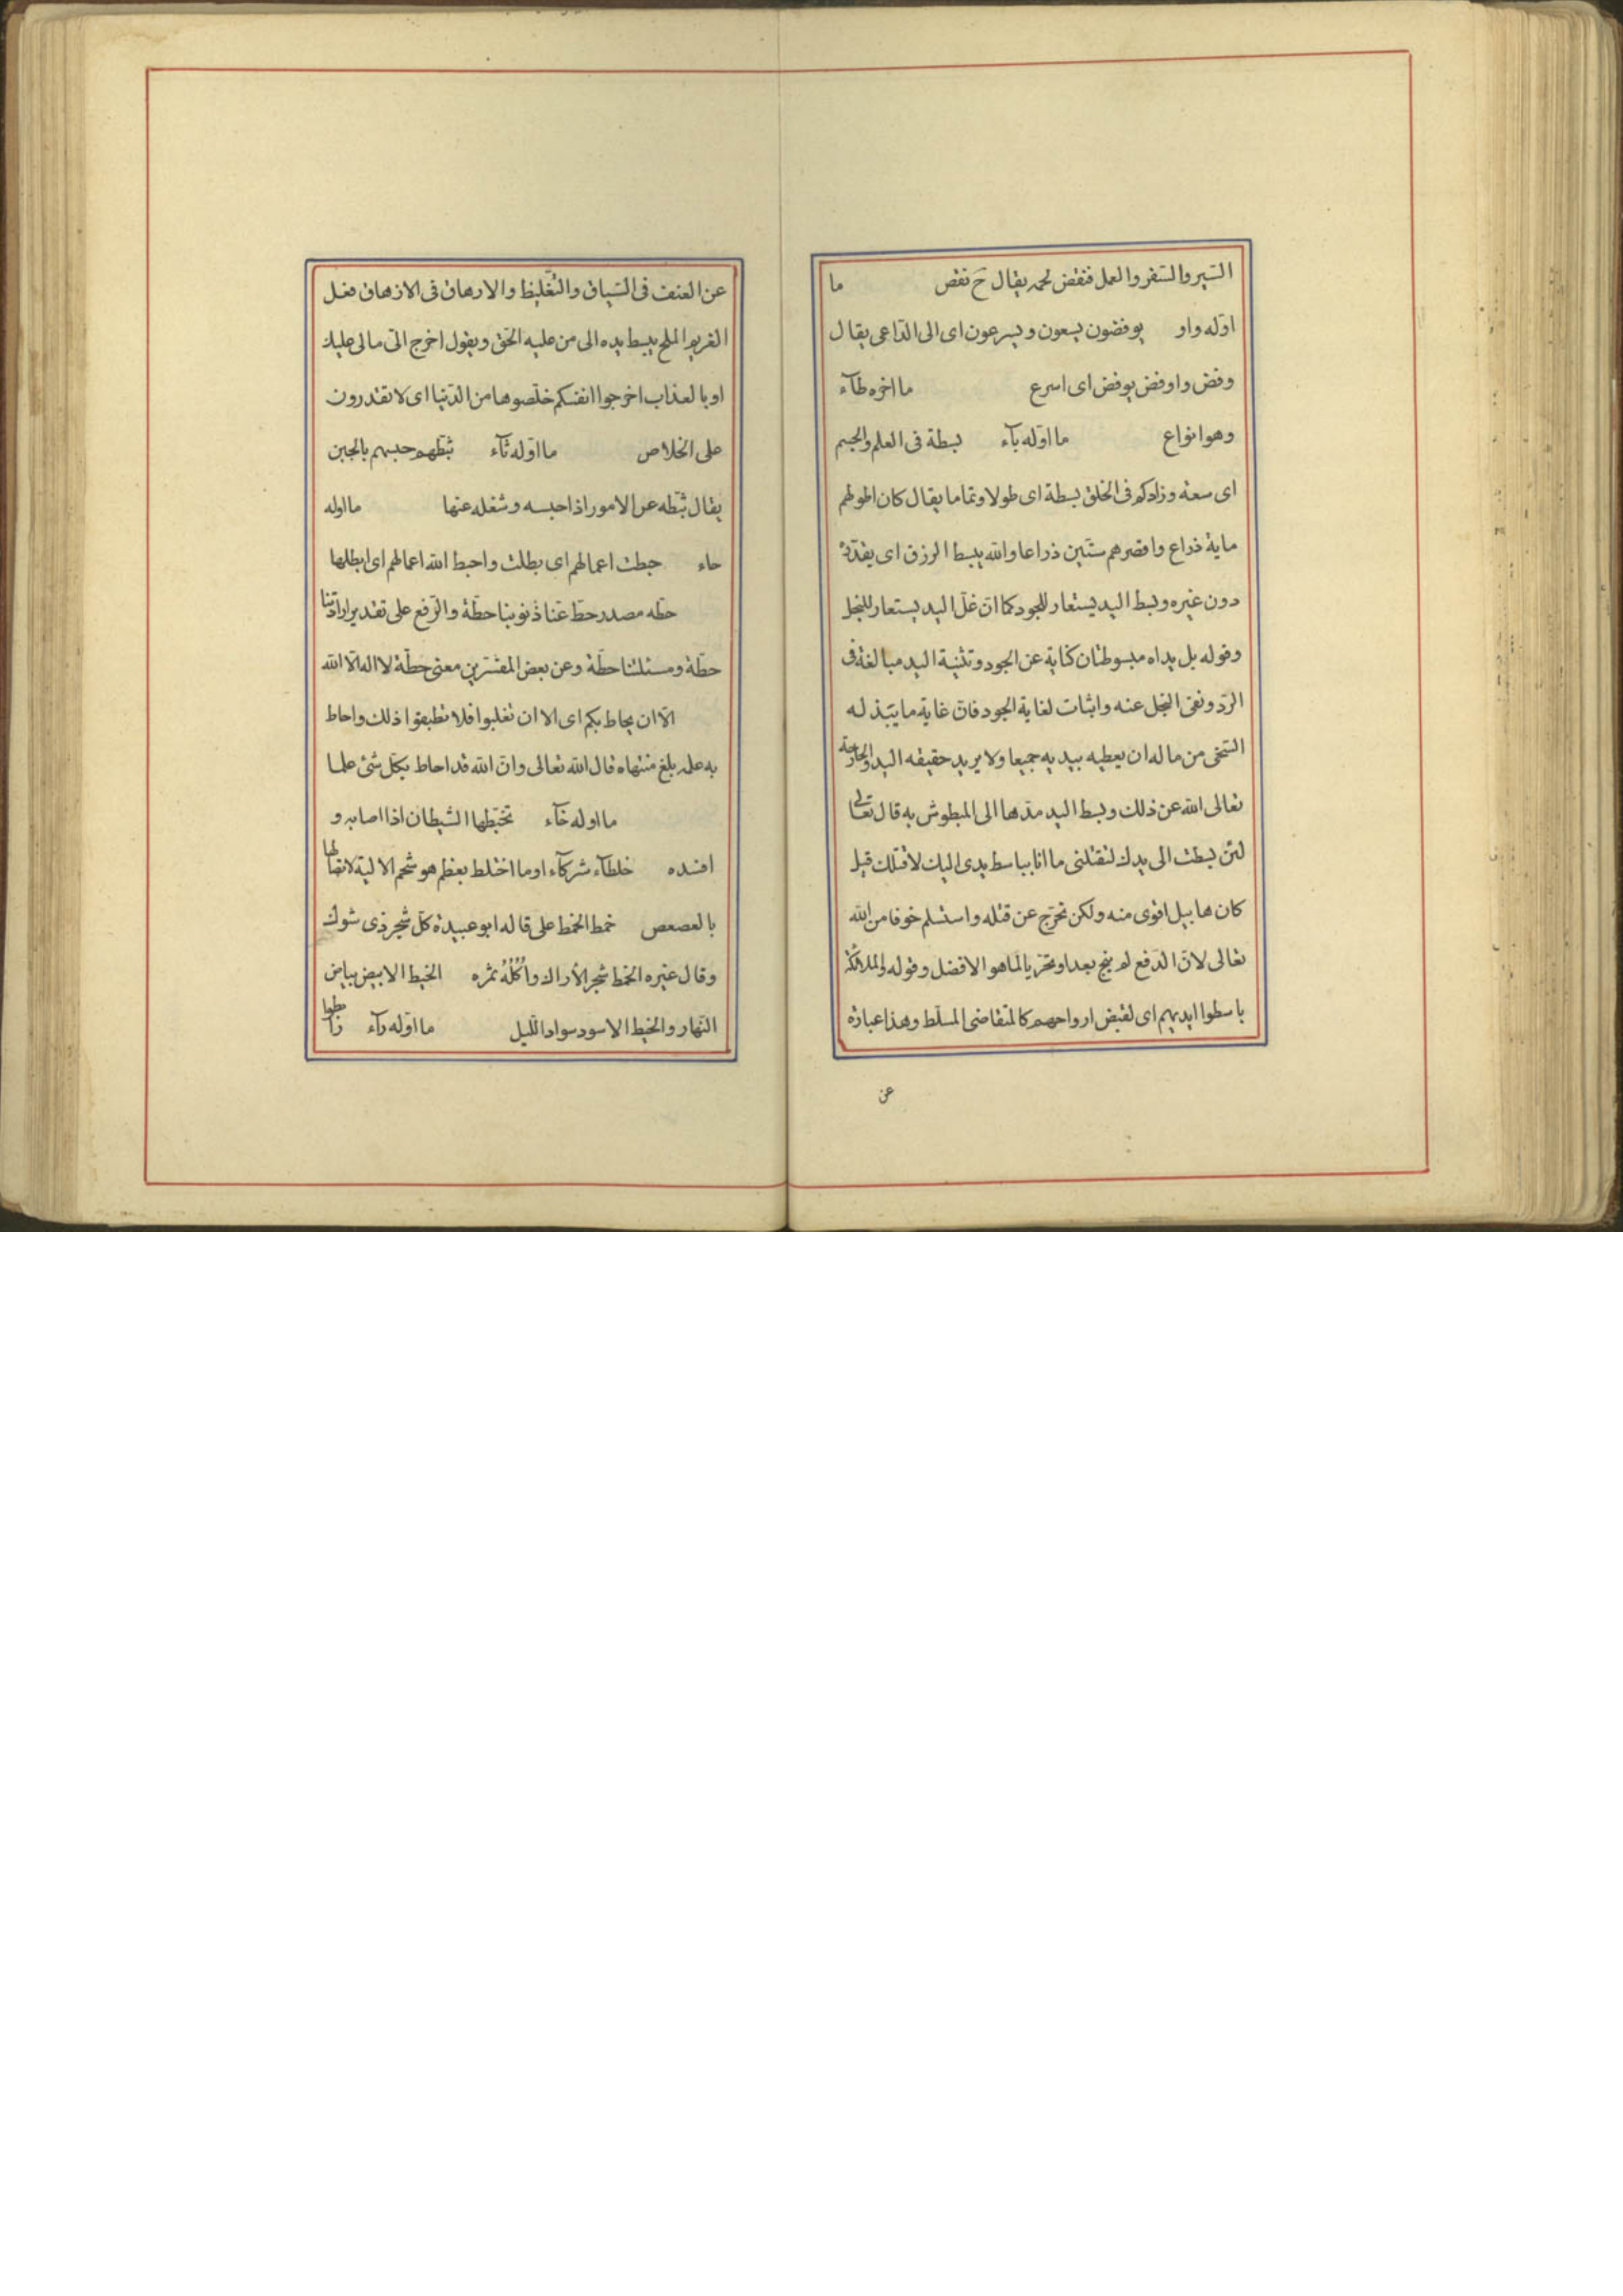 السّير والسّفر والعمل فنقض لحمه يقال ح نقض ما
اوّله واو يوفضون يسعون ويسرعون اى الى الدّاعى يقال
وفض واوفض يوفض اى اسرع ما اخره طآء
وهو انواع ما اوّله بآء بسطة فى العلم والجسم
اى سعة وزادكم فى الخلق بسطة اى طولا وتماما يقال كان اطولهم
ماية ذراع واقصرهم ستّين ذراعا والله يبسط الرزق اى يقدّره
دون غيره وبسط اليد يستعار للجود كما انّ غلّ اليد يستعار للبخل
وقوله بل يداه مبسوطتان كناية عن الجود وتثنية اليد مبالغة فى
الرّد ونفى البخل عنه واثبات لغاية الجود فانّ غاية ما يبذله
السّخى من ماله ان يعطيه بيديه جميعا ولا يريد حقيقه اليد والجارحة
تعالى الله عن ذلك وبسط اليد مدّها الى المبطوش به قال تعالى
لئن بسطت الى يدك لتقتلنى ما انا بباسط يدى اليك لاقتلك قيل
كان هابيل اقوى منه ولكن تحرّج عن قتله واستسلم خوفا من الله
تعالى لانّ الدّفع لم يبح بعد او تحرّيا لما هو الافضل وقوله والملائكة
باسطوا ايديهم اى لقبض ارواحهم كالمتقاضى المسلّط وهذا عبارة
عن
عن العنف فى السّياق والتّغليظ والارهاق فى الازهاق فعل
الغريم الملح يبسط يده الى من عليه الحقّ ويقول اخرج الىّ مالى عليك
او بالعذاب اخرجوا انفسكم خلّصوها من الدّنيا اى لا تقدرون
على الخلاص ما اوّله ثآء ثبّطهم حبسهم بالجبن
يقال ثبّطه عن الامور اذا حبسه وشغله عنها ما اوله
حاء حبطت اعمالهم اى بطلت واحبط الله اعمالهم اى ابطلها
حطّه مصدر حطّ عنّا ذنوبنا حطّة والرّفع على تقدير ارادتنا
حطّة ومسئلتنا حطّة وعن بعض المفسّرين معنى حطّة لا اله الّا الله
الّا ان يحاط بكم اى الا ان تغلبوا فلا تطيقوا ذلك واحاط
به علمه بلغ منتهاه قال الله تعالى وانّ الله قد احاط بكلّ شئ علما
ما اوله خآء تخبّطها الشّيطان اذا اصابه و
افسده خلطآء شركآء او ما اختلط بعظم هو شحم الالية لاتصالها
بالعصعص خمط الخمط على قاله ابو عبيدة كلّ شجر ذى شوك
وقال غيره الخمط شجر الأراك وأُكُلُهُ ثمره الخيط الابيض بياض
النّهار والخيط الاسود سواد اللّيل ما اوّله رآء رابطوا